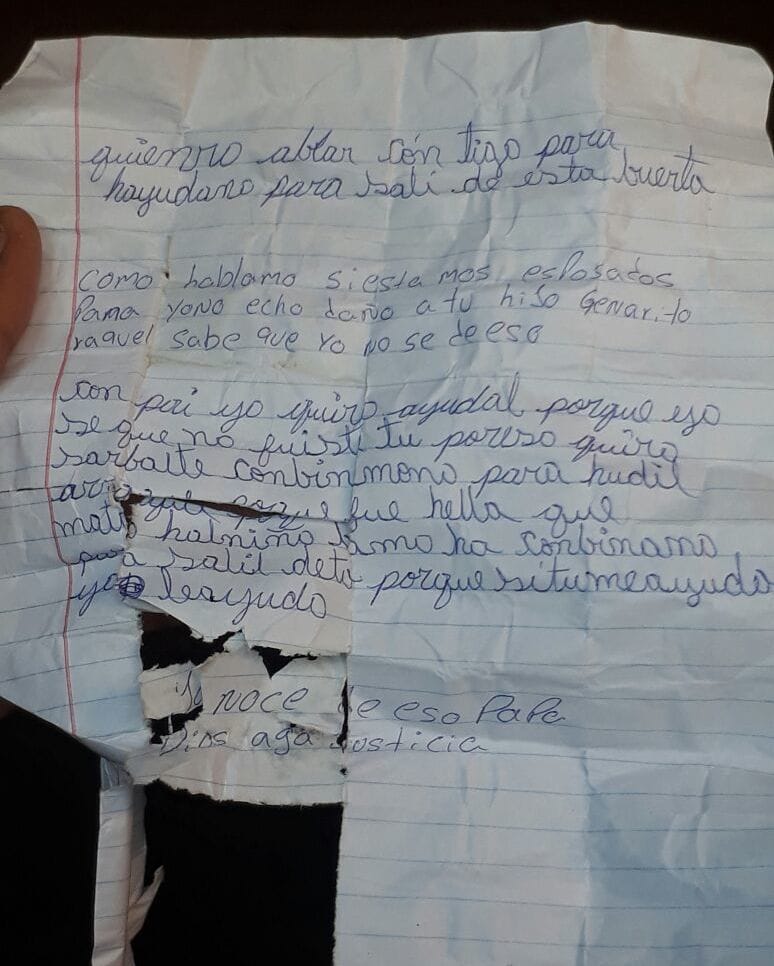 quienro ablar con tigo para
hayudano para sali de esta buerta
como hablamo si esta mos esposados
Pama yo no echo daño a tu hiso Genarito
raquel sabe que yo no se de eso
con pai yo quiro ayudal porque yo
se que no fuisti tu poreso quiro
sarbalte conbinmono para hudil
porque fue hella que
mato halnino bamo ha conbinamo
para salil deto porque si tu me ayuda
yo leayudo
yo noce de eso PaPa
Dios aga Justicia